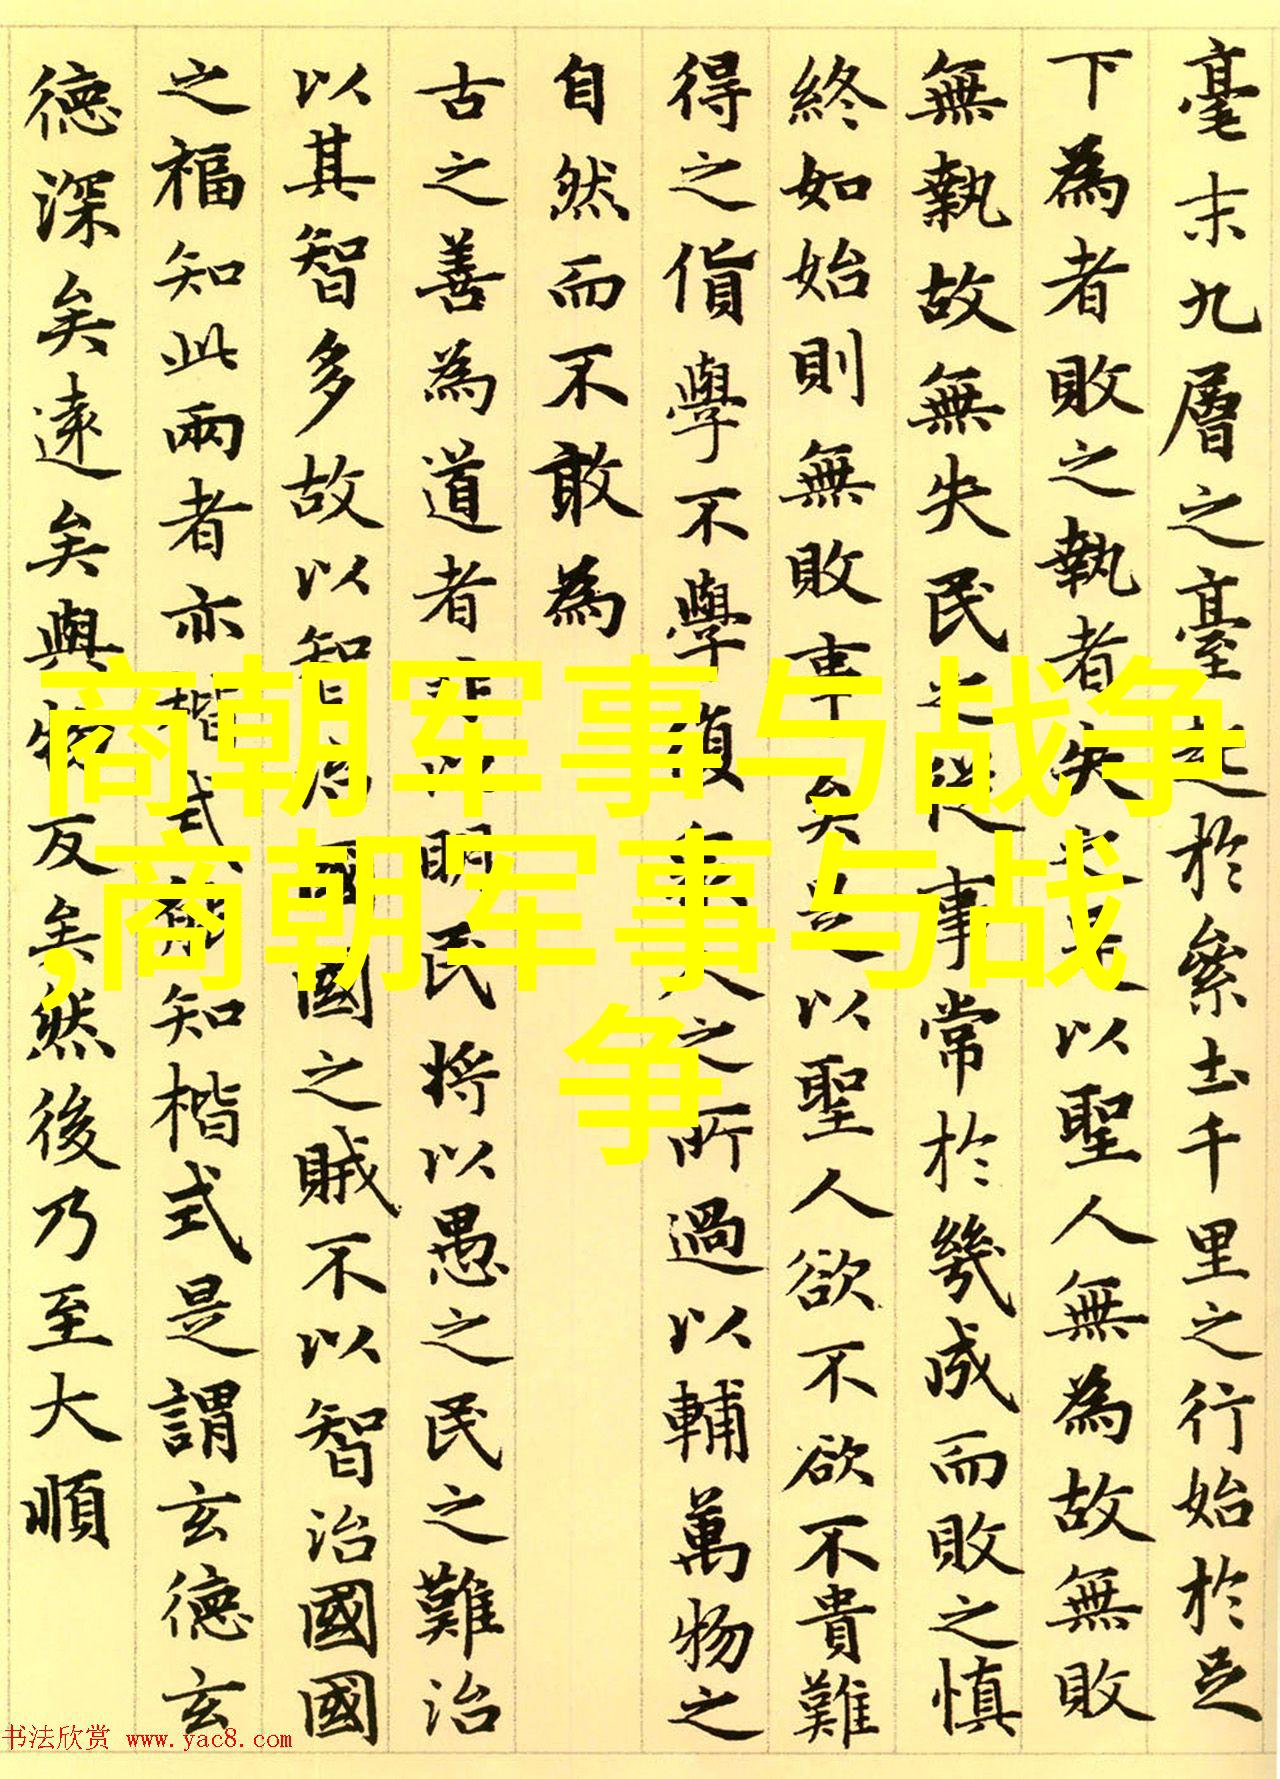 毫末九層之臺起於絫土千里之行始於足
下為者敗之執者失之是以聖人無為故無敗
無執故無失民之從事常於幾成而敗之慎
終如始則無敗事矣是以聖人欲不欲不貴難
得之貨學不學復衆人之所過以輔萬物之
自然而不敢為
古之善為道者非以明民將以愚之民之難治
以其智多故以智治國國之賊不以智治國國
之福知此兩者亦楷式能知楷式是謂玄德玄
德深矣遠矣與物反矣然後乃至大順
商朝军事与战争
,商朝军事与战
争
书法欣赏 www.yac8.com